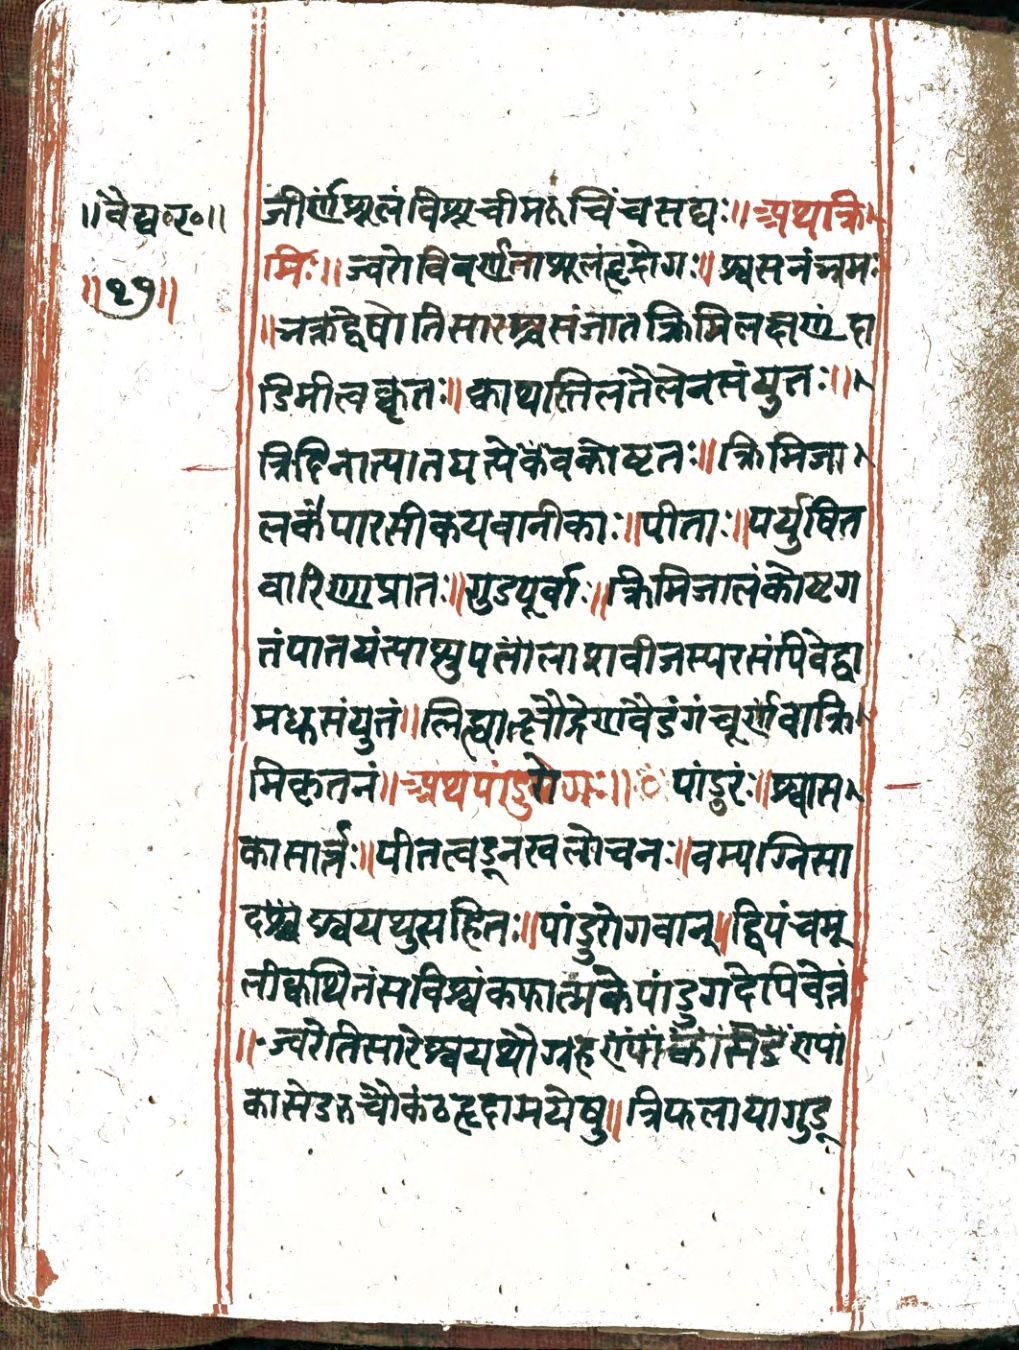 ॥वैद्य॰र॰॥
॥१७॥
जीर्णंशूलंविशूचीमरुचिंचसद्यः॥अथक्रि
मिः॥ज्वरोविवर्णताशूलंहृद्रोगःश्वसनंभ्रमः
॥भक्तद्वेषोतिसारश्चसंजातक्रिमिलक्षणंदा
डिमीत्वक्कृतः॥क्वाथस्तिलतैलेनसंयुतः॥
त्रिदिनात्पातयत्येवकोष्टतः॥क्रिमिजा
लकंपारसीकयवानीकाः॥पीताः॥पर्युषित
वारिणाप्रातः॥गुडपूर्वाः॥क्रिमिजालंकोष्टग
तंपातयंत्पाशुपलाशबीजस्परसंपिवेद्वा
मध्कसंयुतं॥लिह्यात्क्षौद्रेणवैडंगंचूर्णंवाक्रि
मिकृतनं॥अथपांडुरोगः॥पांडुरः॥श्वास
कासार्त्तः॥पीतत्वङूनखलोचनः॥वम्यग्निसा
दश्चश्वयथुसहितः॥पांडुरोगवान्॥द्विपंचमू
लीक्वथितंसविश्वंकफात्मकेपांडुगदेपिवेत्तं
॥ज्वरेतिसारेश्वयथौग्रह
कासेऽरुचौकंठहृदामयेषु॥त्रिफलायागुडू